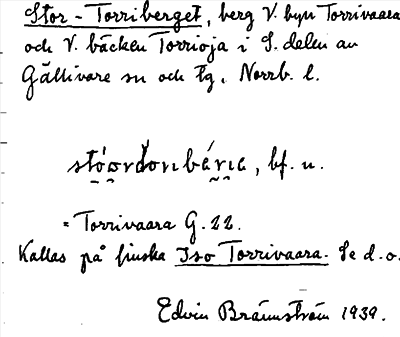 Stor-Torriberget, berg V. byn Torrivaara
och V. bäcken Torrioja i S. delen av
Gällivare sn och tg, Norrb. l.
bf. n.
= Torrivaara G. 22.
Kallas på finska Iso Torrivaara. Se d.o.
Edvin Brännström 1939.